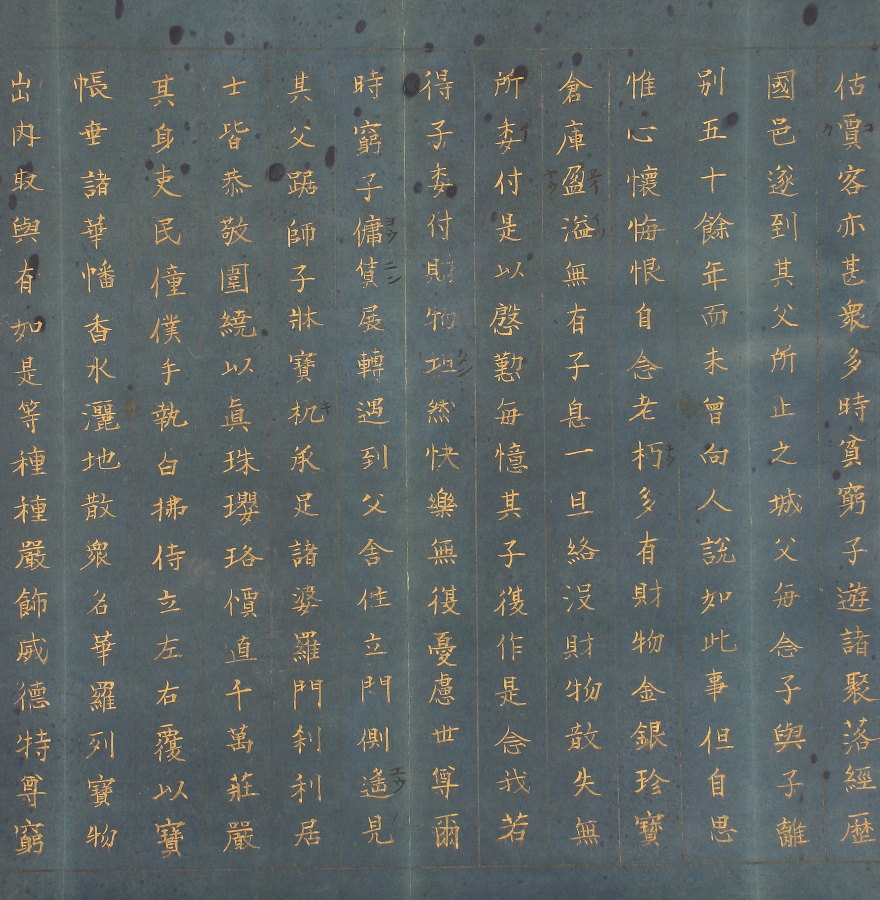 估賈客亦甚衆多時貧窮子遊諸聚落經歷
國邑遂到其父所止之城父每念子與子離
別五十餘年而未曾向人說如此事但自思
惟心懷悔恨自念老朽多有財物金銀珍寶
倉庫盈溢無有子息一旦終沒財物散失無
所委付是以慇懃每憶其子復作是念我若
得子委付財物坦然快樂無復憂慮世尊爾
時窮子傭賃展轉遇到父舍住立門側遙見
其父踞師子牀寶机承足諸婆羅門刹利居
士皆恭敬圍繞以眞珠瓔珞價直千萬莊嚴
其身吏民僮僕手執白拂侍立左右覆以寶
帳垂諸華幡香水灑地散衆名華羅列寶物
出內取與有如是等種種嚴飾威德特尊窮